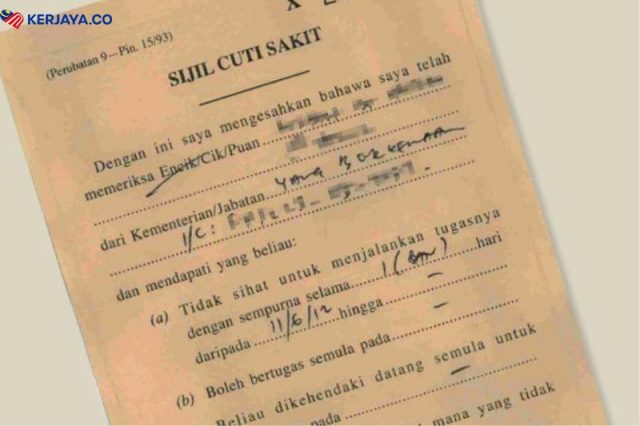 KERJAYA.CO
X
(Perubatan 9—Pin. 15/93)
SIJIL CUTI SAKIT
Dengan ini saya mengesahkan bahawa saya telah
memeriksa Encik/Cik/Puan
dari Kementerian/Jabatan YANG BERKENAAN
I/C:
dan mendapati yang beliau:
(a) Tidak sihat untuk menjalankan tugasnya
dengan sempurna selama 1 ( ) hari
daripada 11/6/12 hingga –
(b) Boleh bertugas semula pada –
Beliau dikehendaki datang semula untuk
pada –
mana yang tidak